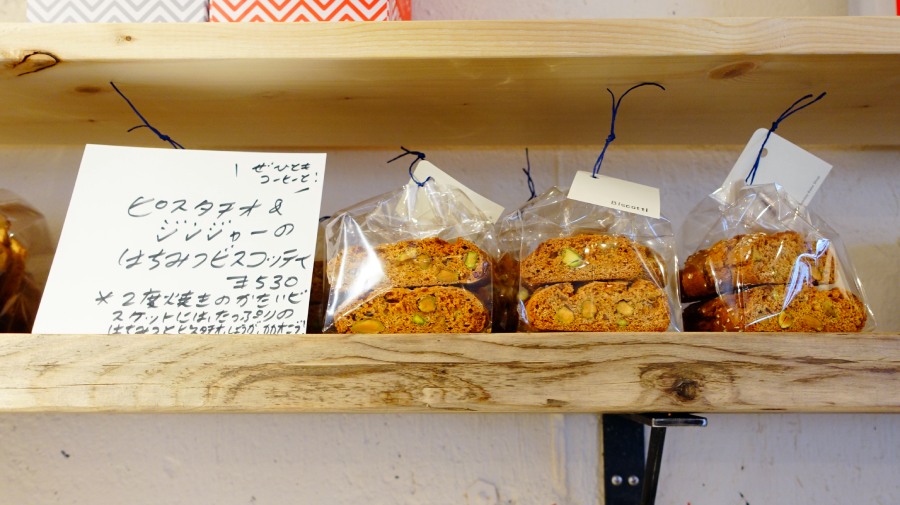 ぜひとも
コーヒーと!
ピスタチオ&
ジンジャーの
はちみつビスコッティ
¥530
*2度焼きのかたいビ
スケットには、たっぷりの
はちみつとピスタチオ、しょうが、カカオニブ
Biscotti